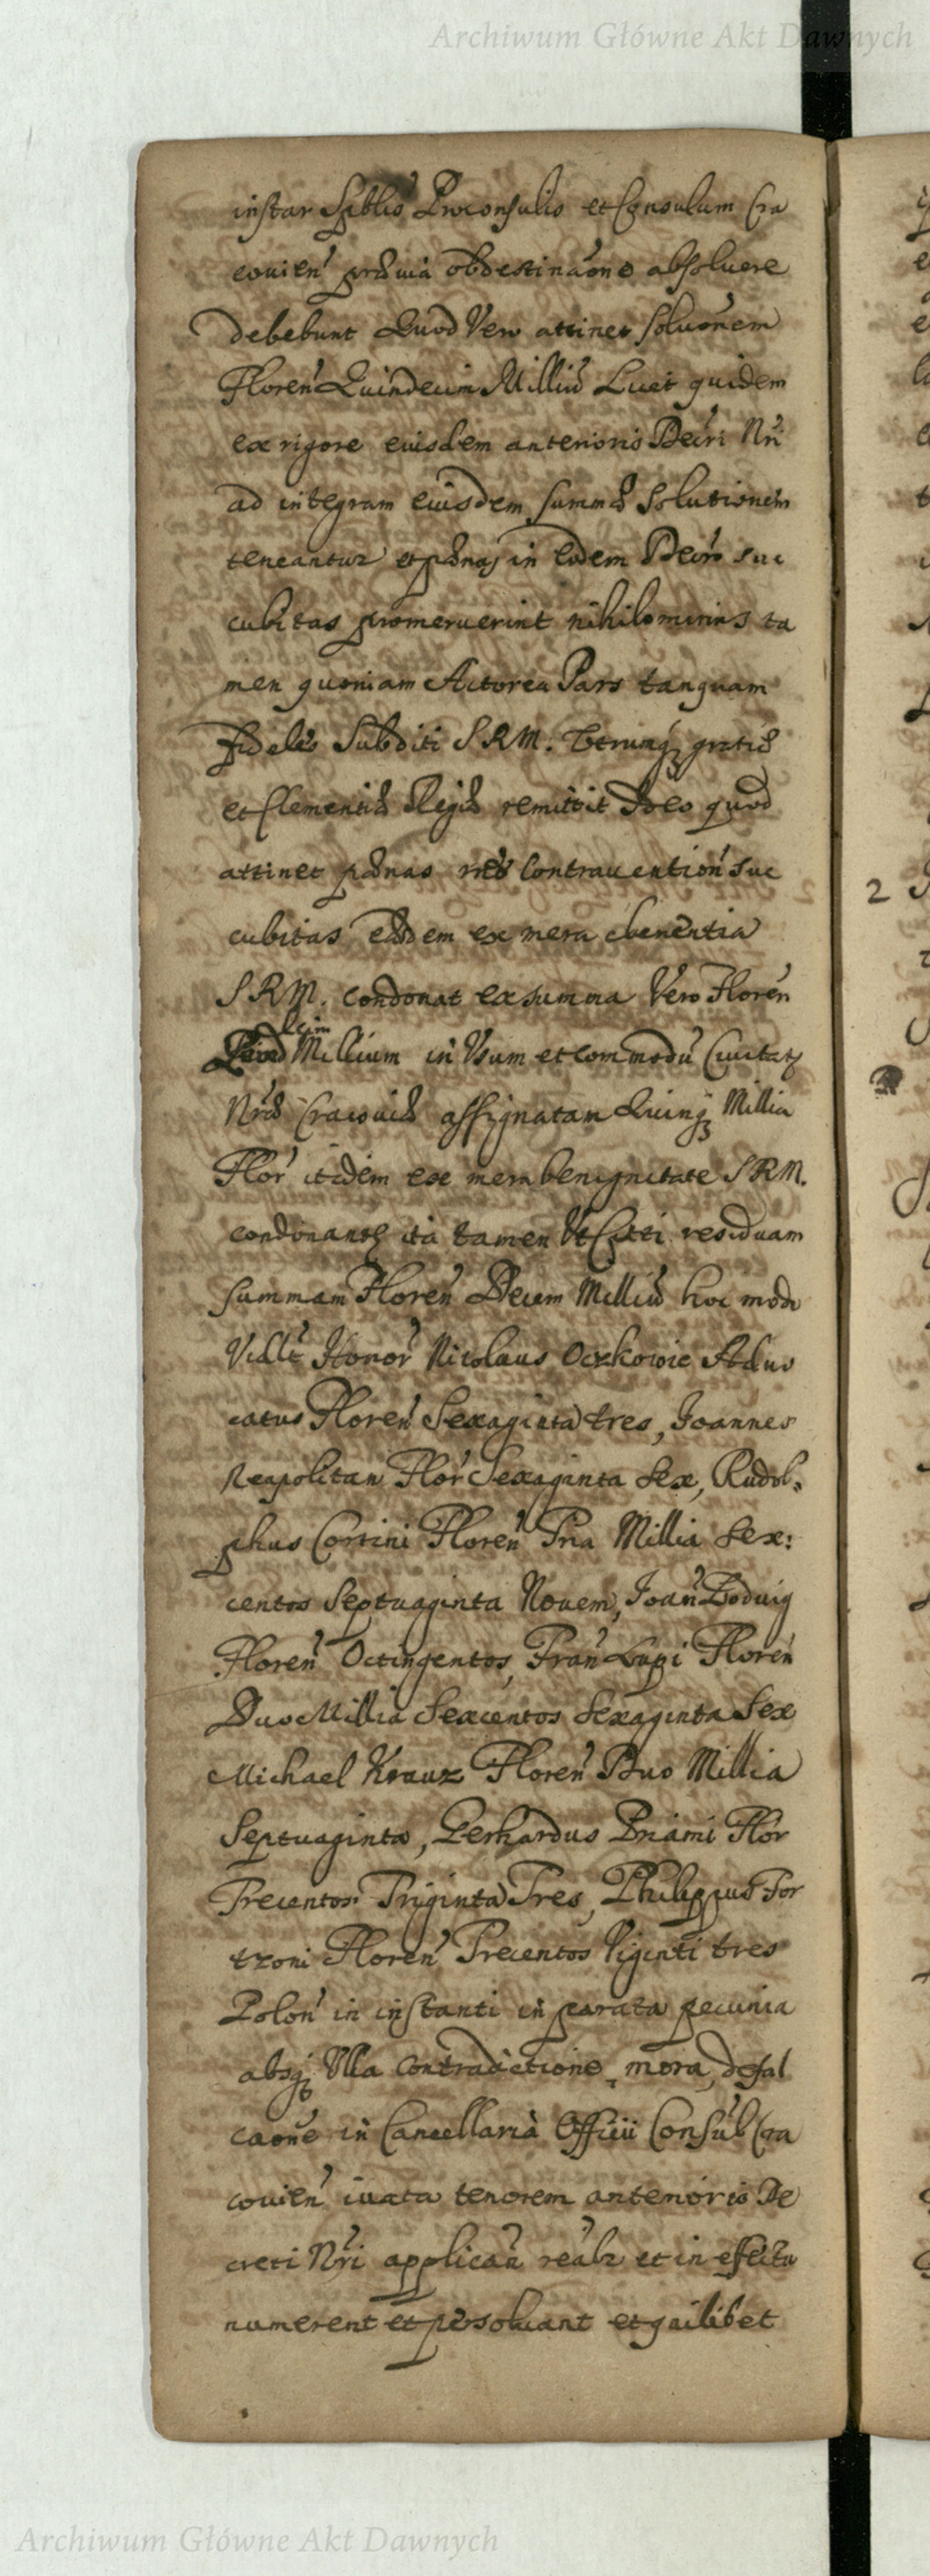 Archiwum Główne Akt Dawnych
instar Spblis Proconsulis et Consulum Cra
couien' praeuia obdestinaone absoluere
debebunt Quod Vero attinet soluōnem
Floren' Quindecim Milliū Licet quidem
ex rigore eiusdem anterioris Decri Nri
ad integram eiusdem summae solutionem
teneantur et paenas in eodem Decro suc
cubitas promeruerint nihilominus ta
men quoniam Actorea Pars tanquam
fideles Subditi S R M. Vtrumq gratiae
et Clementiae Regiae remittit Ideo quod
attinet paenas contrauention' suc
cubitas easdem ex mera clementia
S R M. condonat ex summa Vero Floren'
decim
Quind Millium in Vsum et commodū Ciuitatis
Nrae Cracouiae assignatam Quinq Millia
Flor' itidem ex mera benignitate S R M.
condonantur ita tamen Vt Citti residuam
summam Floren' Decem Milliū hoc modo
Vidlt Honor' Nicolaus Oczkowic Aduo
catus Floren' Sexaginta tres, Joannes
Neapolitan Flor' Sexaginta Sex, Rudol,
phus Corsini Floren' Tria Millia Sex:
centos Septuaginta Nouem, Joan' Lodwig
Floren' Octingentos, Fran' Lupi Floren'
Duo Millia Sexcentos Sexaginta Sex
Michael Krauz Floren' Duo Millia
Septuaginta, Gerhardus Priami Flor
Trecentos Triginta Tres, Philippus For
tzoni Floren' Trecentos Viginti tres
Polon' in instanti in parata pecunia
absq Vlla Contradictione, mora, defal
caone in Cancellaria Officii Consulū Cra
couien' iuxta tenorem anterioris De
creti Nri applicań realr et in effectu
numerent et persoluant et quilibet
2
Archiwum Główne Akt Dawnych